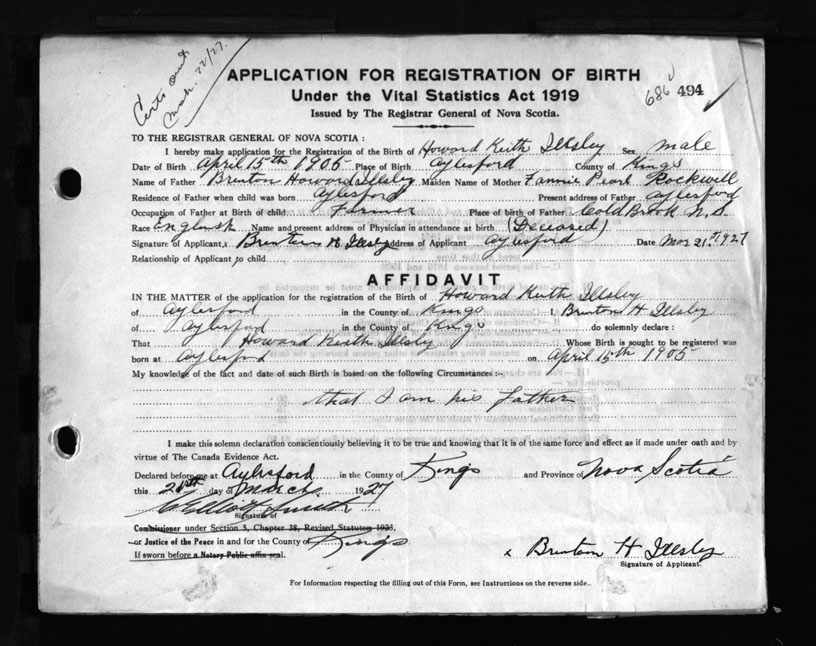 Certs out
Mar. 22/27.
APPLICATION FOR REGISTRATION OF BIRTH
Under the Vital Statistics Act 1919
686 494
Issued by The Registrar General of Nova Scotia.
TO THE REGISTRAR GENERAL OF NOVA SCOTIA :
I hereby make application for the Registration of the Birth of Howard Keith Illsley Sex male
Date of Birth April 15th 1905 Place of Birth Aylesford County of Kings
Name of Father Brinton Howard Illsley Maiden Name of Mother Fannie Pearl Rockwell
Residence of Father when child was born Aylesford Present address of Father Aylesford
Occupation of Father at Birth of child Farmer Place of birth of Father Cold Brook N.S.
Race English Name and present address of Physician in attendance at birth (Deceased)
Signature of Applicant, x Brinton H Illsley Address of Applicant Aylesford Date Mar 21st 1927
Relationship of Applicant to child
AFFIDAVIT
IN THE MATTER of the application for the registration of the Birth of Howard Keith Illsley
of Aylesford in the County of Kings I, Brinton H Illsley
of Aylesford in the County of Kings do solemnly declare :
That Howard Keith Illsley Whose Birth is sought to be registered was
born at Aylesford on April 15th 1905
My knowledge of the fact and date of such Birth is based on the following Circumstances :-
that I am his father
I make this solemn declaration conscientiously believing it to be true and knowing that it is of the same force and effect as if made under oath and by
virtue of The Canada Evidence Act.
Declared before me at Aylesford in the County of Kings and Province of Nova Scotia
this day of March 1927
Smith
Signature of
Commissioner under Section 5, Chapter 38, Revised Statutes 1923,
or Justice of the Peace in and for the County of Kings
If sworn before a Notary Public affix seal.
x Brinton H Illsley
Signature of Applicant.
For Information respecting the filling out of this Form, see Instructions on the reverse side.